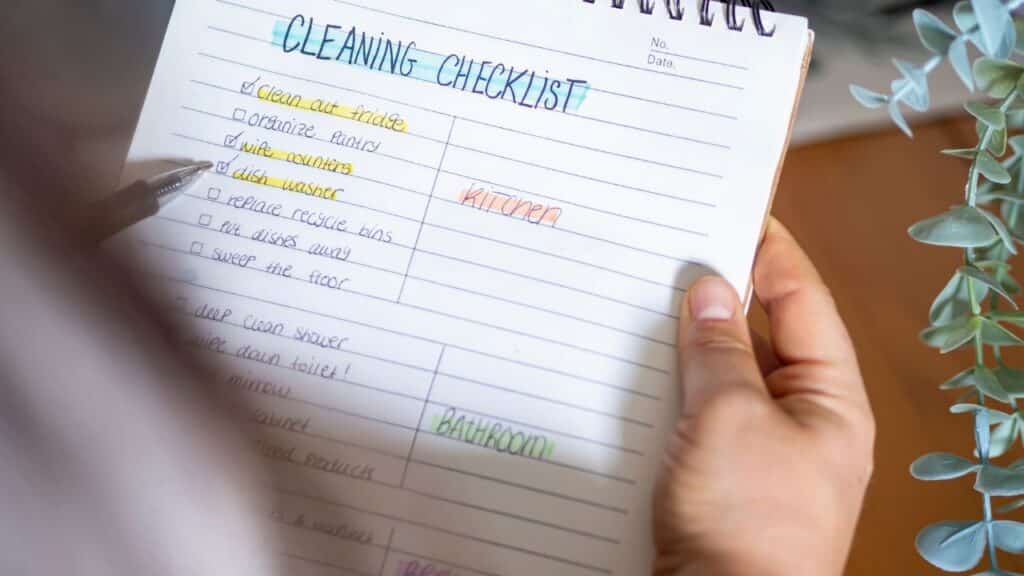 No.
Date.
CLEANING CHECKLIST
clean out fridge
organize pantry
wipe counters
dish washer
replace recycle bins
put dishes away
sweep the floor
KITCHEN
deep clean shower
wipe down toilet!
mirrow
cabinet
products
BATHROOM